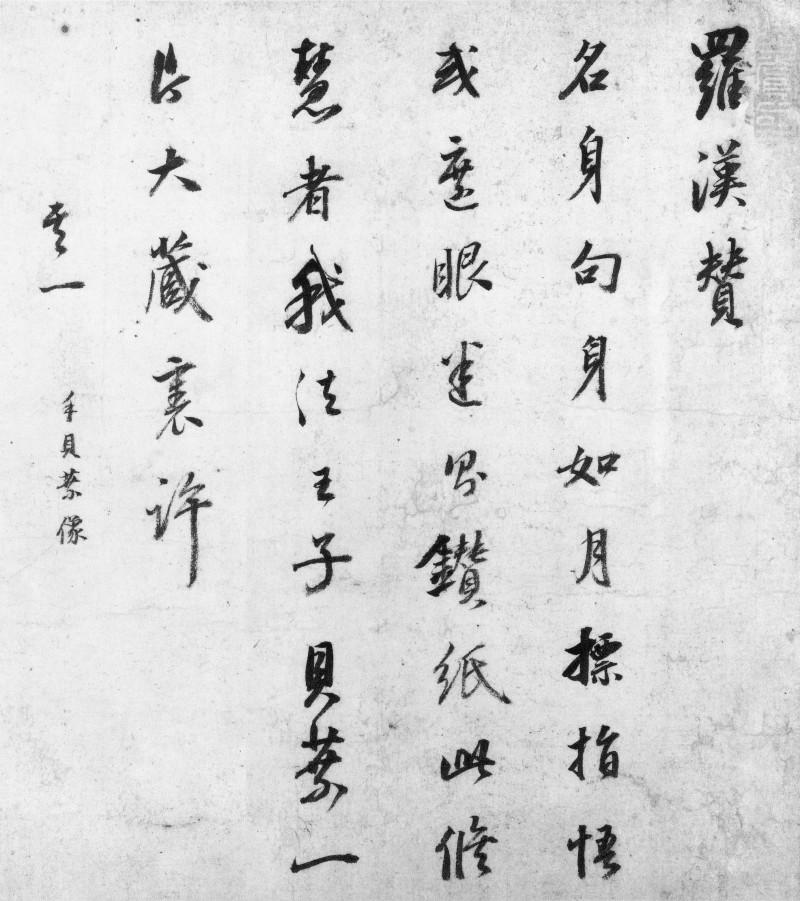 羅漢贊
名身句身如月標指悟
或遮眼迷鑽紙此修
慧者我法王子貝葉一
片大藏裏許
其一 手貝葉像